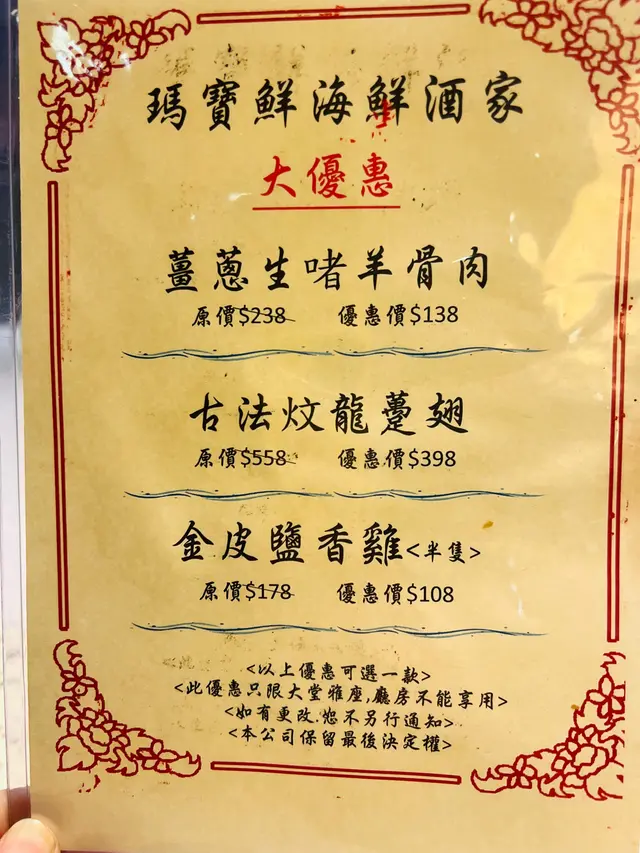 瑪寶鮮海鮮酒家
大優惠
薑蔥生啫羊骨肉
原價$238 優惠價$138
古法炆龍躉翅
原價$558 優惠價$398
金皮鹽香雞<半隻>
原價$178 優惠價$108
<以上優惠可選一款>
<此優惠只限大堂雅座,廳房不能享用>
<如有更改.恕不另行通知>
<本公司保留最後決定權>